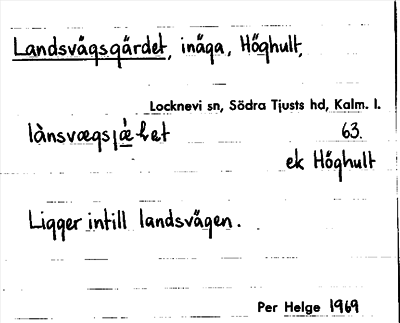 Landsvägsgärdet, inäga, Höghult,
Locknevi sn, Södra Tjusts hd, Kalm. l.
63.
ek Höghult
Ligger intill landsvägen.
Per Helge 1969